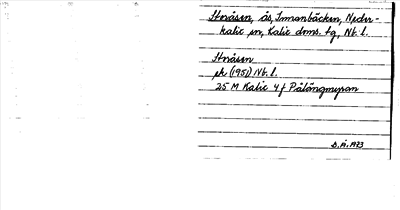 Storåsen, ås, Innanbäcken, Neder-
kalix sn, Kalix doms. tg, Nb. l.
Storåsen
ek (1951) Nb. l.
25 M Kalix 4 f Pålängmyran
S. Å. 1973